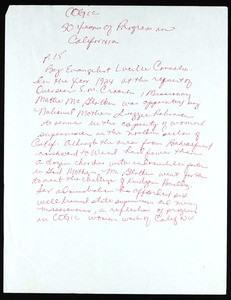 COGIC
50 Years of Progress in
California
P. 15
By: Evangelist Lucille Cornelius
In the Year 1924 at the request of
Overseer E. M. Crouch, Missionary
Mattie Mc Glothen was appointed by
National Mother Lizzie Robinson
to serve in the capacity of women
supervisor in the northern section of
Calif. Although the area from Bakersfield
northward to Weed had fewer than
a dozen churches with unshakable faith
in God Mother Mc Glothen went forth
to meet the challenge of Kingdom Building.
her
well trained state supervisor and many
missionaries, a reflection of progress
in COGIC women work of Calif NW